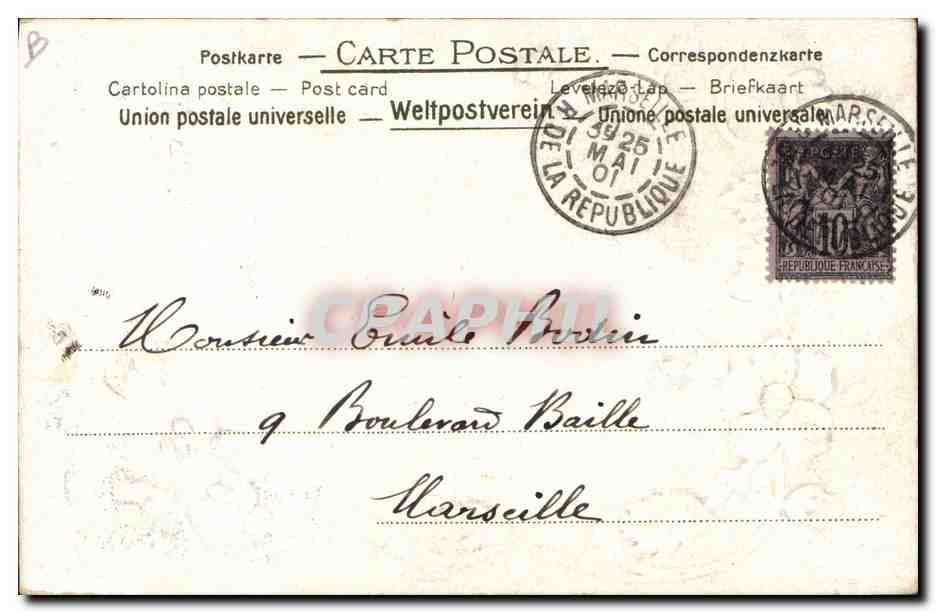 B
Postkarte — CARTE POSTALE. — Correspondenzkarte
Cartolina postale — Post card Levelező-Lap — Briefkaart
Union postale universelle — Weltpostverein — Unione postale universale
MARSEILLE
3E 25
MAI
01
R. DE LA REPUBLIQUE
MARSEILLE
POSTE
10
REPUBLIQUE FRANÇAISE
CPAPHIL
Monsieur Emile Bodin
9 Boulevard Baille
Marseille